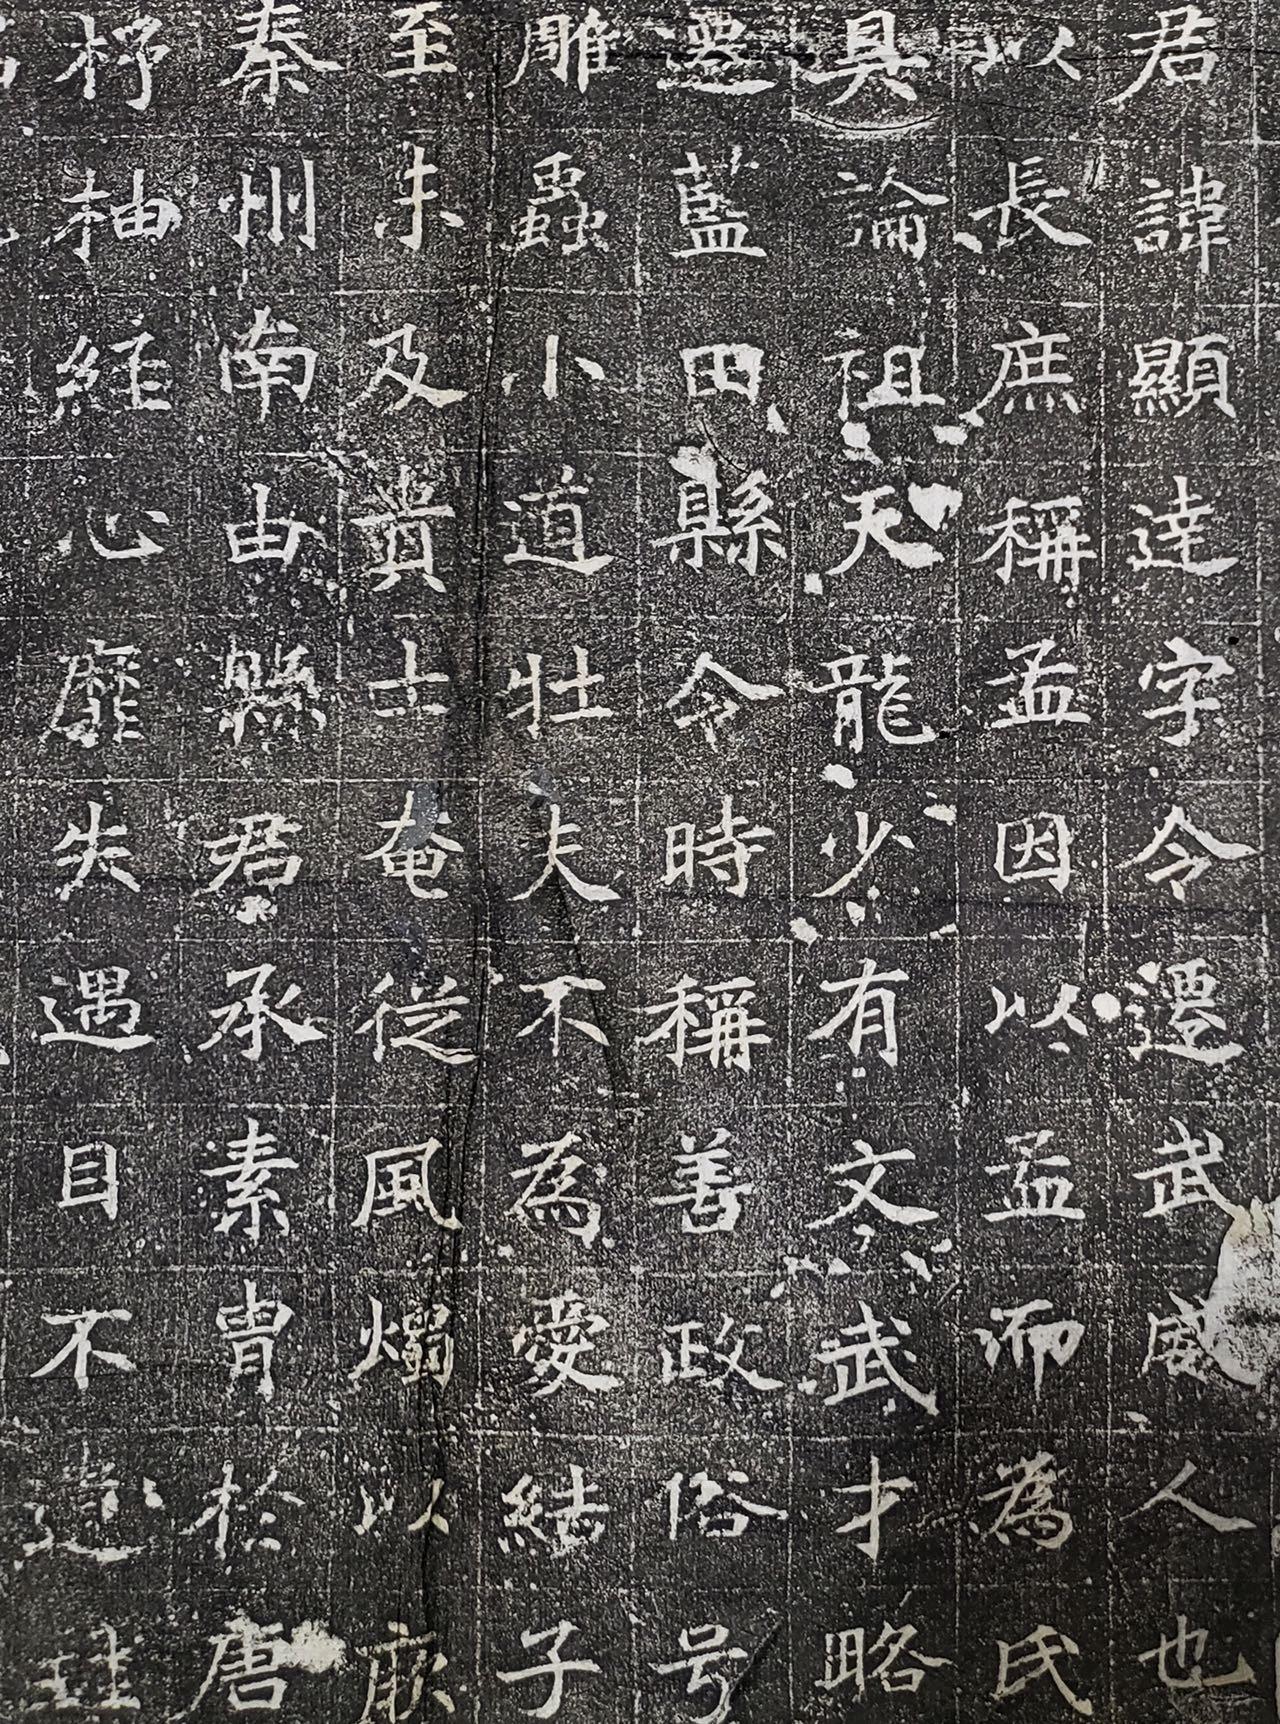 君諱顯達字令遷武威人也
以長庶稱孟因以孟而為氏
具論祖天龍少有文武才略
遷藍田縣令時稱善政俗号
雕蟲小道壮夫不為愛結子
至未及貴士奄從風燭以
秦州南由縣君承素胄於唐
杼柚經心靡失遇目不遺